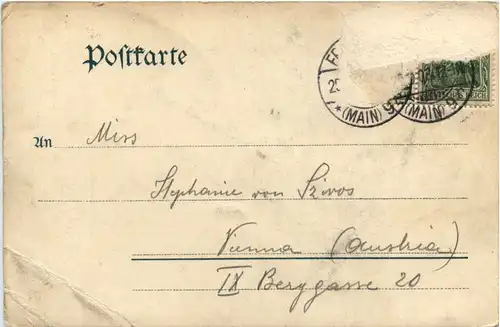 Postkarte
(MAIN) 9
(MAIN) 9
An Miss
Stephanie von Szivos
Vienna (Austria)
IX Berggasse 20